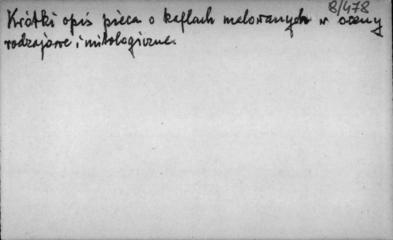 8/478
Krótki opis pieca o kaflach malowanych w sceny
rodzajowe i mitologiczne.